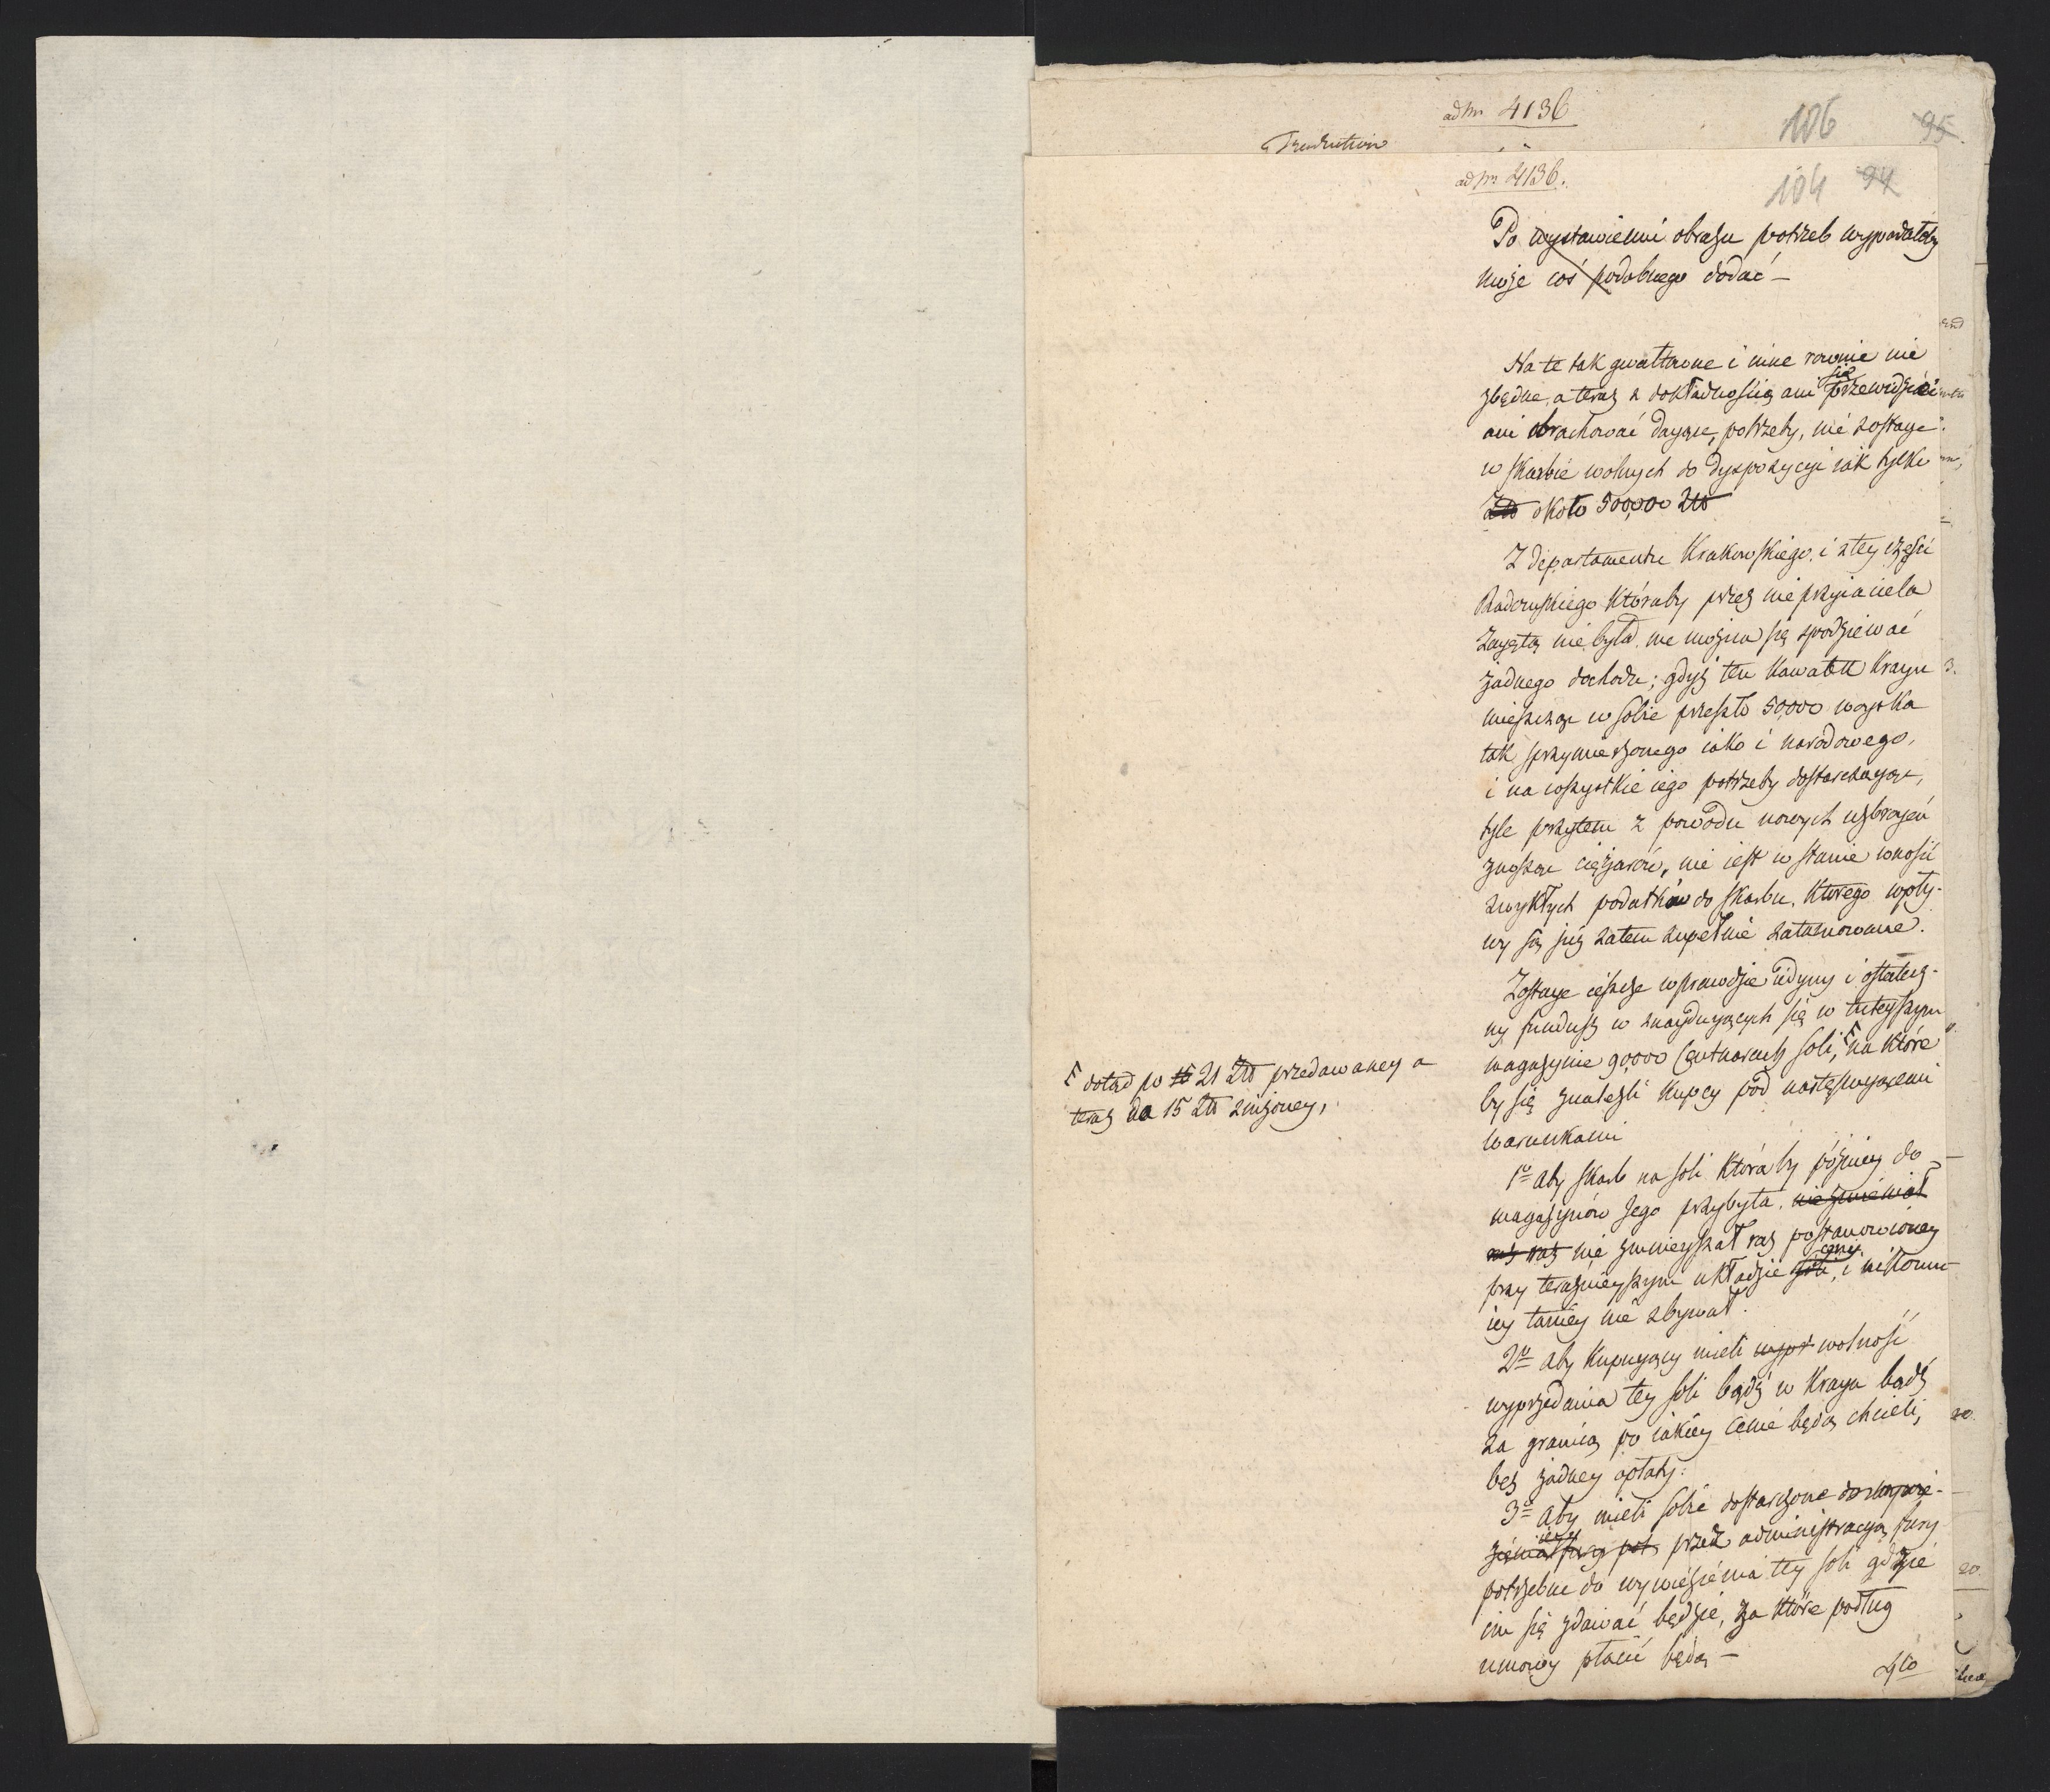 ad Nr 4136
106 95.
Traduction
ad Nr 4136.
104 94
Po wystawieniu obrazu potrzeb wypadałoby
może coś podobnego dodać —
Na te tak gwałtowne i inne rownie nie
zbędne, a teraz z dokładnością ani się przewidzieć
ani obrachować daiące potrzeby, nie zostaye
w skarbie wolnych do dyspozycyi iak tylko
Złł około 500,000 Złł
Z departamentu Krakowskiego i z tey części
Radomskiego któraby przez nieprzyiaciela
zayęta nie była nie można się spodziewać
żadnego dochodu; gdyż ten kawałek kraju
mieszcząc w sobie przeszło 50,000 woyska
tak sprzymierzonego iako i narodowego,
i na wszystkie iego potrzeby dostarczaiąc,
tyle przytem z powodu nowych uzbrojeń
znosząc ciężarów, nie iest w stanie wnosić
zwykłych podatków do skarbu, którego wpły-
wy są już zatem zupełnie zatamowane.
Zostaye ieszcze wprawdzie iedyny i ostatecz-
ny fundusz w znayduiących się w tuteyszym
magazynie 90,000 Centnarach soli, na które
by się znaleźli kupcy pod następuiącemi
warunkami
dotąd po 15 21 Złł przedawaney a
teraz do 15 Złł zniżoney,
1o aby skarb na soli któraby pózniey do
magazynów Jego przybyła, nie zmieniał
raz nie zmnieyszał raz postanowioney
przy teraznieyszym układzie soli ceny, i nikomu
iey taniey nie zbywał.
2o aby kupuiący mieli wypr wolność
wyprzedania tey soli bądź w kraju bądź
za granicą po iakiey cenie będą chcieli,
bez żadney opłaty.
3o aby mieli sobie dostarczone do wywie-
zienia iey fury pot przez administracyą fury
potrzebne do wywiezienia tey soli gdzie
im się zdawać będzie, za które podług
umowy płacić będą —
4to